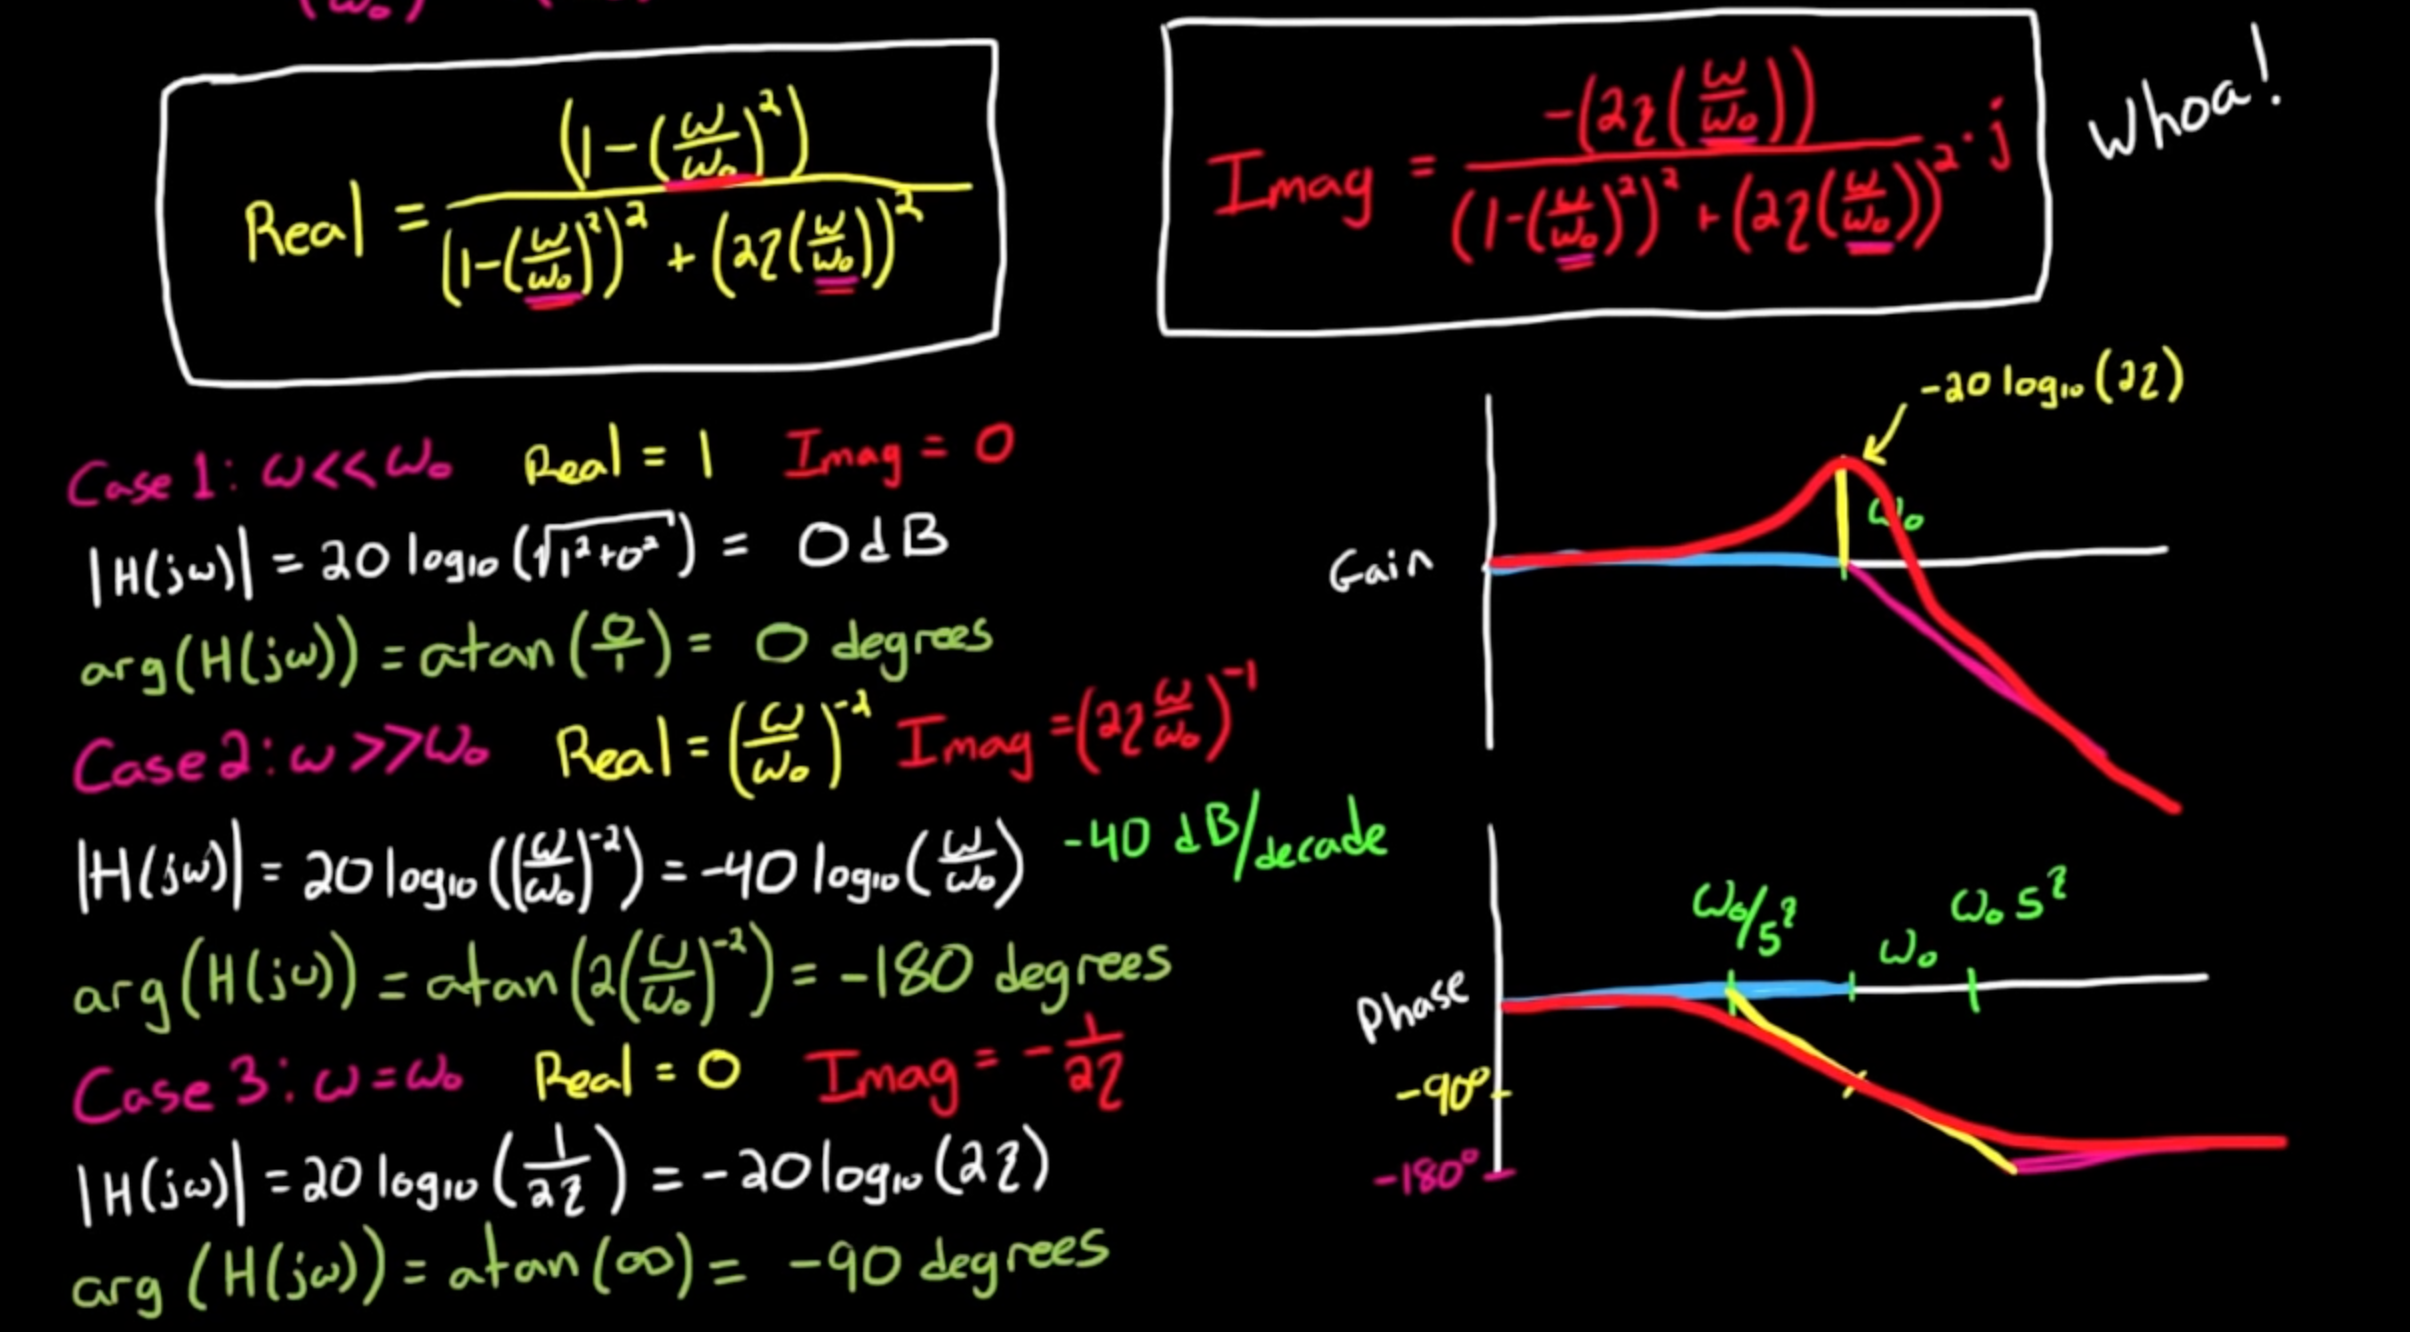 (ω₀) (
Real = (1-(ω/ω₀)²) / ((1-(ω/ω₀)²)² + (2ζ(ω/ω₀))²)
Imag = -(2ζ(ω/ω₀)) / ((1-(ω/ω₀)²)² + (2ζ(ω/ω₀))²) · j
Whoa!
Case 1: ω<<ω₀ Real = 1 Imag = 0
|H(jω)| = 20 log₁₀(√(1²+0²)) = 0 dB
arg(H(jω)) = atan(0/1) = 0 degrees
Case 2: ω>>ω₀ Real = (ω/ω₀)⁻² Imag = (2ζ ω/ω₀)⁻¹
|H(jω)| = 20 log₁₀((ω/ω₀)⁻²) = -40 log₁₀(ω/ω₀) -40 dB/decade
arg(H(jω)) = atan(2(ω/ω₀)⁻²) = -180 degrees
Case 3: ω=ω₀ Real = 0 Imag = -1/2ζ
|H(jω)| = 20 log₁₀(1/2ζ) = -20 log₁₀(2ζ)
arg(H(jω)) = atan(∞) = -90 degrees
-20 log₁₀(2ζ)
ω₀
Gain
ω₀/5^ζ
ω₀
ω₀ 5^ζ
Phase
-90°
-180°